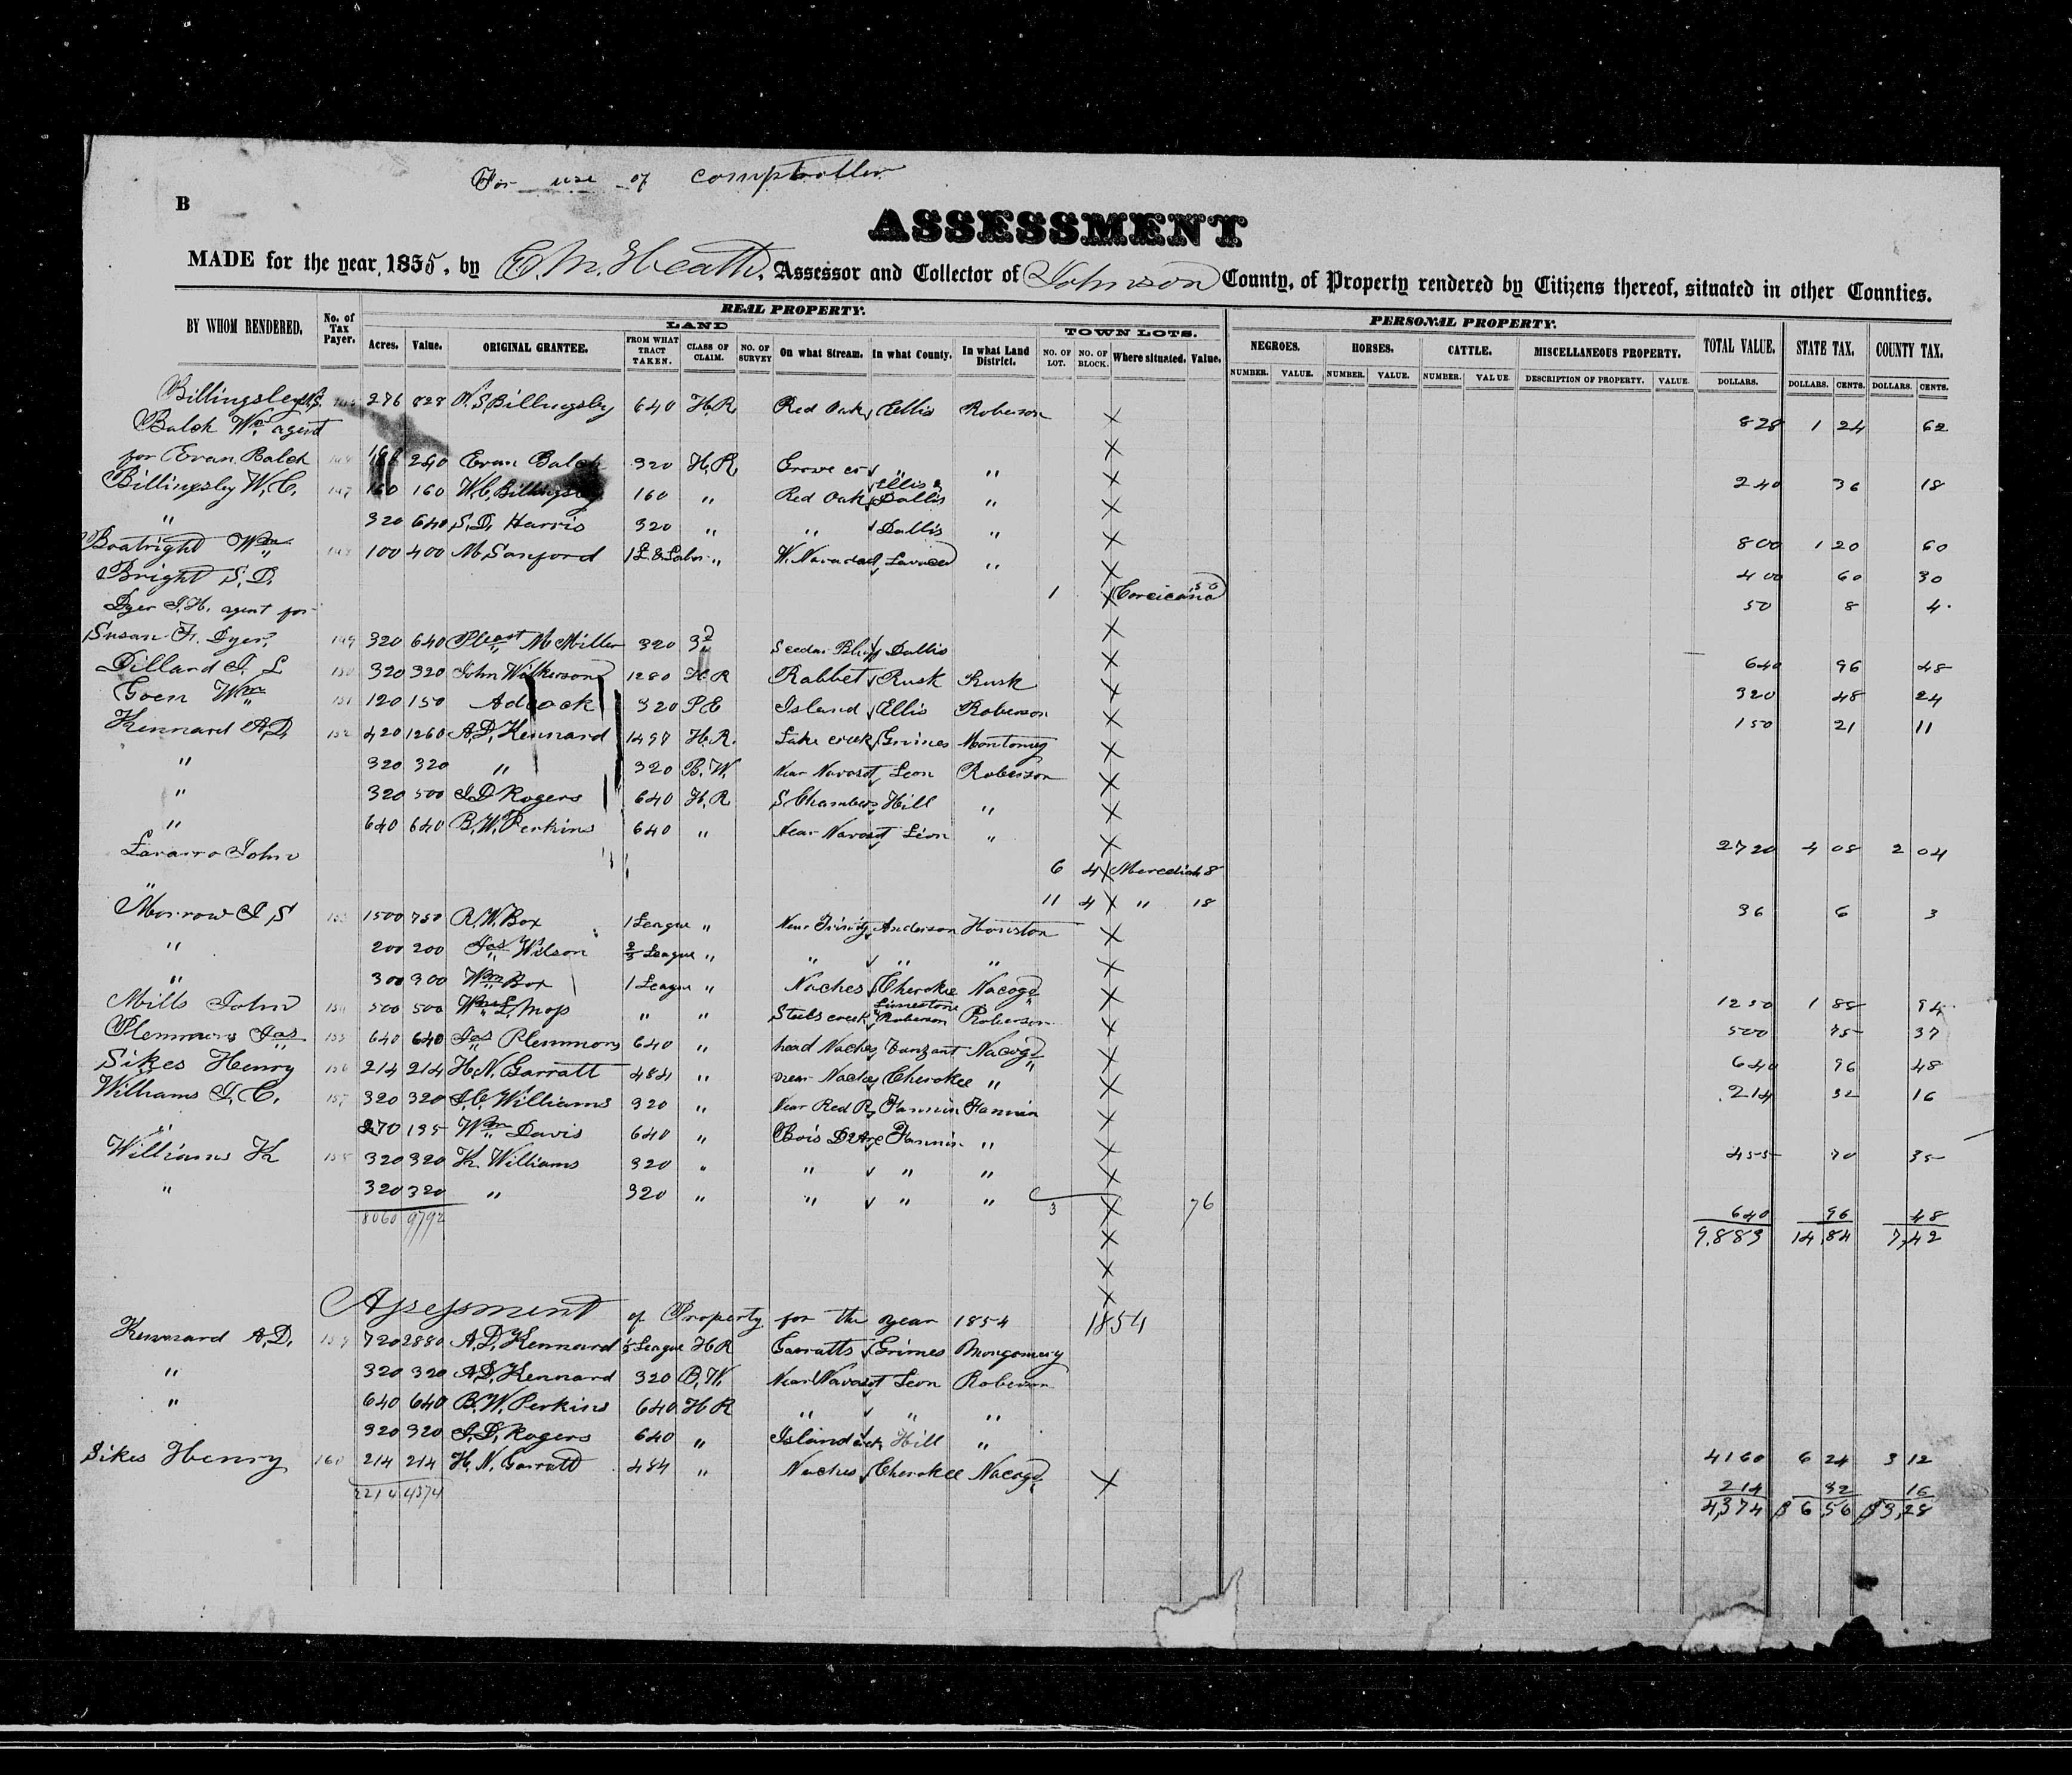 For use of comptroller
B
ASSESSMENT
MADE for the year 1855, by E. M. Heath, Assessor and Collector of Johnson County, of Property rendered by Citizens thereof, situated in other Counties.
REAL PROPERTY. PERSONAL PROPERTY.
LAND TOWN LOTS. NEGROES. HORSES. CATTLE. MISCELLANEOUS PROPERTY. TOTAL VALUE. STATE TAX. COUNTY TAX.
BY WHOM RENDERED. No. of Tax Payer. Acres. Value. ORIGINAL GRANTEE. FROM WHAT TRACT TAKEN. CLASS OF CLAIM. NO. OF SURVEY On what Stream. In what County. In what Land District. NO. OF LOT. NO. OF BLOCK. Where situated. Value. NUMBER. VALUE. NUMBER. VALUE. NUMBER. VALUE. DESCRIPTION OF PROPERTY. VALUE. DOLLARS. DOLLARS. CENTS. DOLLARS. CENTS.
Billingsley 276 828 N. S. Billingsley 640 H.R. Red Oak Ellis Roberson X 828 1 24 62
Balch Wm agent X
for Evan Balch 240 Evan Balch 320 H.R. Grove cr " " X 240 36 18
Billingsley W. C. 147 160 160 W. C. Billingsley 160 " Red Oak Ellis & Dallis " X
" 320 640 S. D. Harris 320 " " Dallis " X 800 1 20 60
Boatright Wm 148 100 400 M. Sanford 1 L. & Labor " W. Lavaca " X 400 60 30
Bright S. D. 1 X Corcicana 50 50 8 4
Dyer J. H. agent for X
Susan F. Dyer 149 320 640 Pleast McMiller 320 3d Dallis X 640 96 48
Dillard J. L 150 320 320 John Wilkerson 1280 H R Rabbet Rusk Rusk X 320 48 24
Goen Wm 151 120 150 Adcock 320 P E Island Ellis Roberson X 150 21 11
Kennard A.D. 152 420 1260 A. D. Kennard 1497 H. R. Lake creek Grimes Montomy X
" 320 320 " 320 B. W. Near Navasot Leon Roberson X
" 320 500 J. D Rogers 640 H. R S Chambers Hill " X
" 640 640 B. W. Perkins 640 " Near Navasot Leon " X 2720 4 08 2 04
Lavarro John 6 4 X Meredian 18
" 11 4 X " 18 36 6 3
Morrow J S 153 1500 750 R. W. Box 1 League " Near Trinity Anderson Houston X
" 200 200 Jas Wilson 2/3 League " " " " X
" 300 300 Wm Box 1 League " Naches Cherokee Nacogd X 1250 1 88 94
Mills John 154 500 500 Wm L. Moss " " Steels creek Limestone & Roberson Roberson X 500 75 37
Plemmons Jas 155 640 640 Jas Plemmons 640 " head Naches Vanzant Nacogd X 640 96 48
Sikes Henry 156 214 214 H. N. Garratt 484 " near Naches Cherokee " X 214 32 16
Williams J. C. 157 320 320 J. C. Williams 320 " Near Red R. Fannin Fannin
" 270 135 Wm Davis 640 " Bois D Arc Fannin " X 455 70 35
Williams K 158 320 320 K. Williams 320 " " " " X
" 320 320 " 320 " " " " 3 X 76 640 96 48
8060 9792 X 9,883 14,84 7,42
X
X
Assessment of Property for the year 1854 1854
Kennard A. D. 159 720 2880 A. D. Kennard 1/3 League H R Garratts Grimes Mongomery
" 320 320 A. D. Kennard 320 B. W. Near Navasot Leon Roberson
" 640 640 B. W. Perkins 640 H R " " "
320 320 J. D. Rogers 640 " Island crk Hill " 4160 6 24 3 12
Sikes Henry 160 214 214 H. N. Garratt 484 " Naches Cherokee Nacogd X 214 32 16
2214 4374 4,374 $ 6,56 $3,28